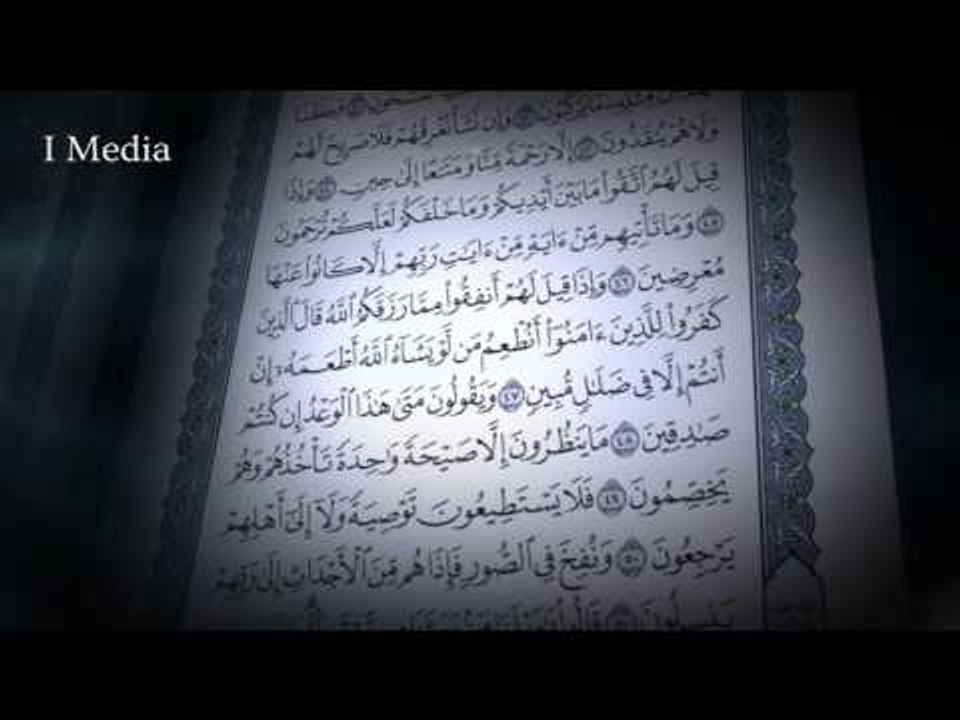 I Media
مَا يَرْكَبُونَ ٤٢ وَإِن نَّشَأْ نُغْرِقْهُمْ فَلَا صَرِيخَ لَهُمْ
وَلَا هُمْ يُنقَذُونَ ٤٣ إِلَّا رَحْمَةً مِّنَّا وَمَتَٰعًا إِلَىٰ حِينٍ ٤٤ وَإِذَا
قِيلَ لَهُمُ ٱتَّقُوا۟ مَا بَيْنَ أَيْدِيكُمْ وَمَا خَلْفَكُمْ لَعَلَّكُمْ تُرْحَمُونَ
٤٥ وَمَا تَأْتِيهِم مِّنْ ءَايَةٍ مِّنْ ءَايَٰتِ رَبِّهِمْ إِلَّا كَانُوا۟ عَنْهَا
مُعْرِضِينَ ٤٦ وَإِذَا قِيلَ لَهُمْ أَنفِقُوا۟ مِمَّا رَزَقَكُمُ ٱللَّهُ قَالَ ٱلَّذِينَ
كَفَرُوا۟ لِلَّذِينَ ءَامَنُوٓا۟ أَنُطْعِمُ مَن لَّوْ يَشَآءُ ٱللَّهُ أَطْعَمَهُۥٓ إِنْ
أَنتُمْ إِلَّا فِى ضَلَٰلٍ مُّبِينٍ ٤٧ وَيَقُولُونَ مَتَىٰ هَٰذَا ٱلْوَعْدُ إِن كُنتُمْ
صَٰدِقِينَ ٤٨ مَا يَنظُرُونَ إِلَّا صَيْحَةً وَٰحِدَةً تَأْخُذُهُمْ وَهُمْ
يَخِصِّمُونَ ٤٩ فَلَا يَسْتَطِيعُونَ تَوْصِيَةً وَلَآ إِلَىٰٓ أَهْلِهِمْ
يَرْجِعُونَ ٥٠ وَنُفِخَ فِى ٱلصُّورِ فَإِذَا هُم مِّنَ ٱلْأَجْدَاثِ إِلَىٰ رَبِّهِمْ
يَنسِلُونَ ٥١ قَالُوا۟